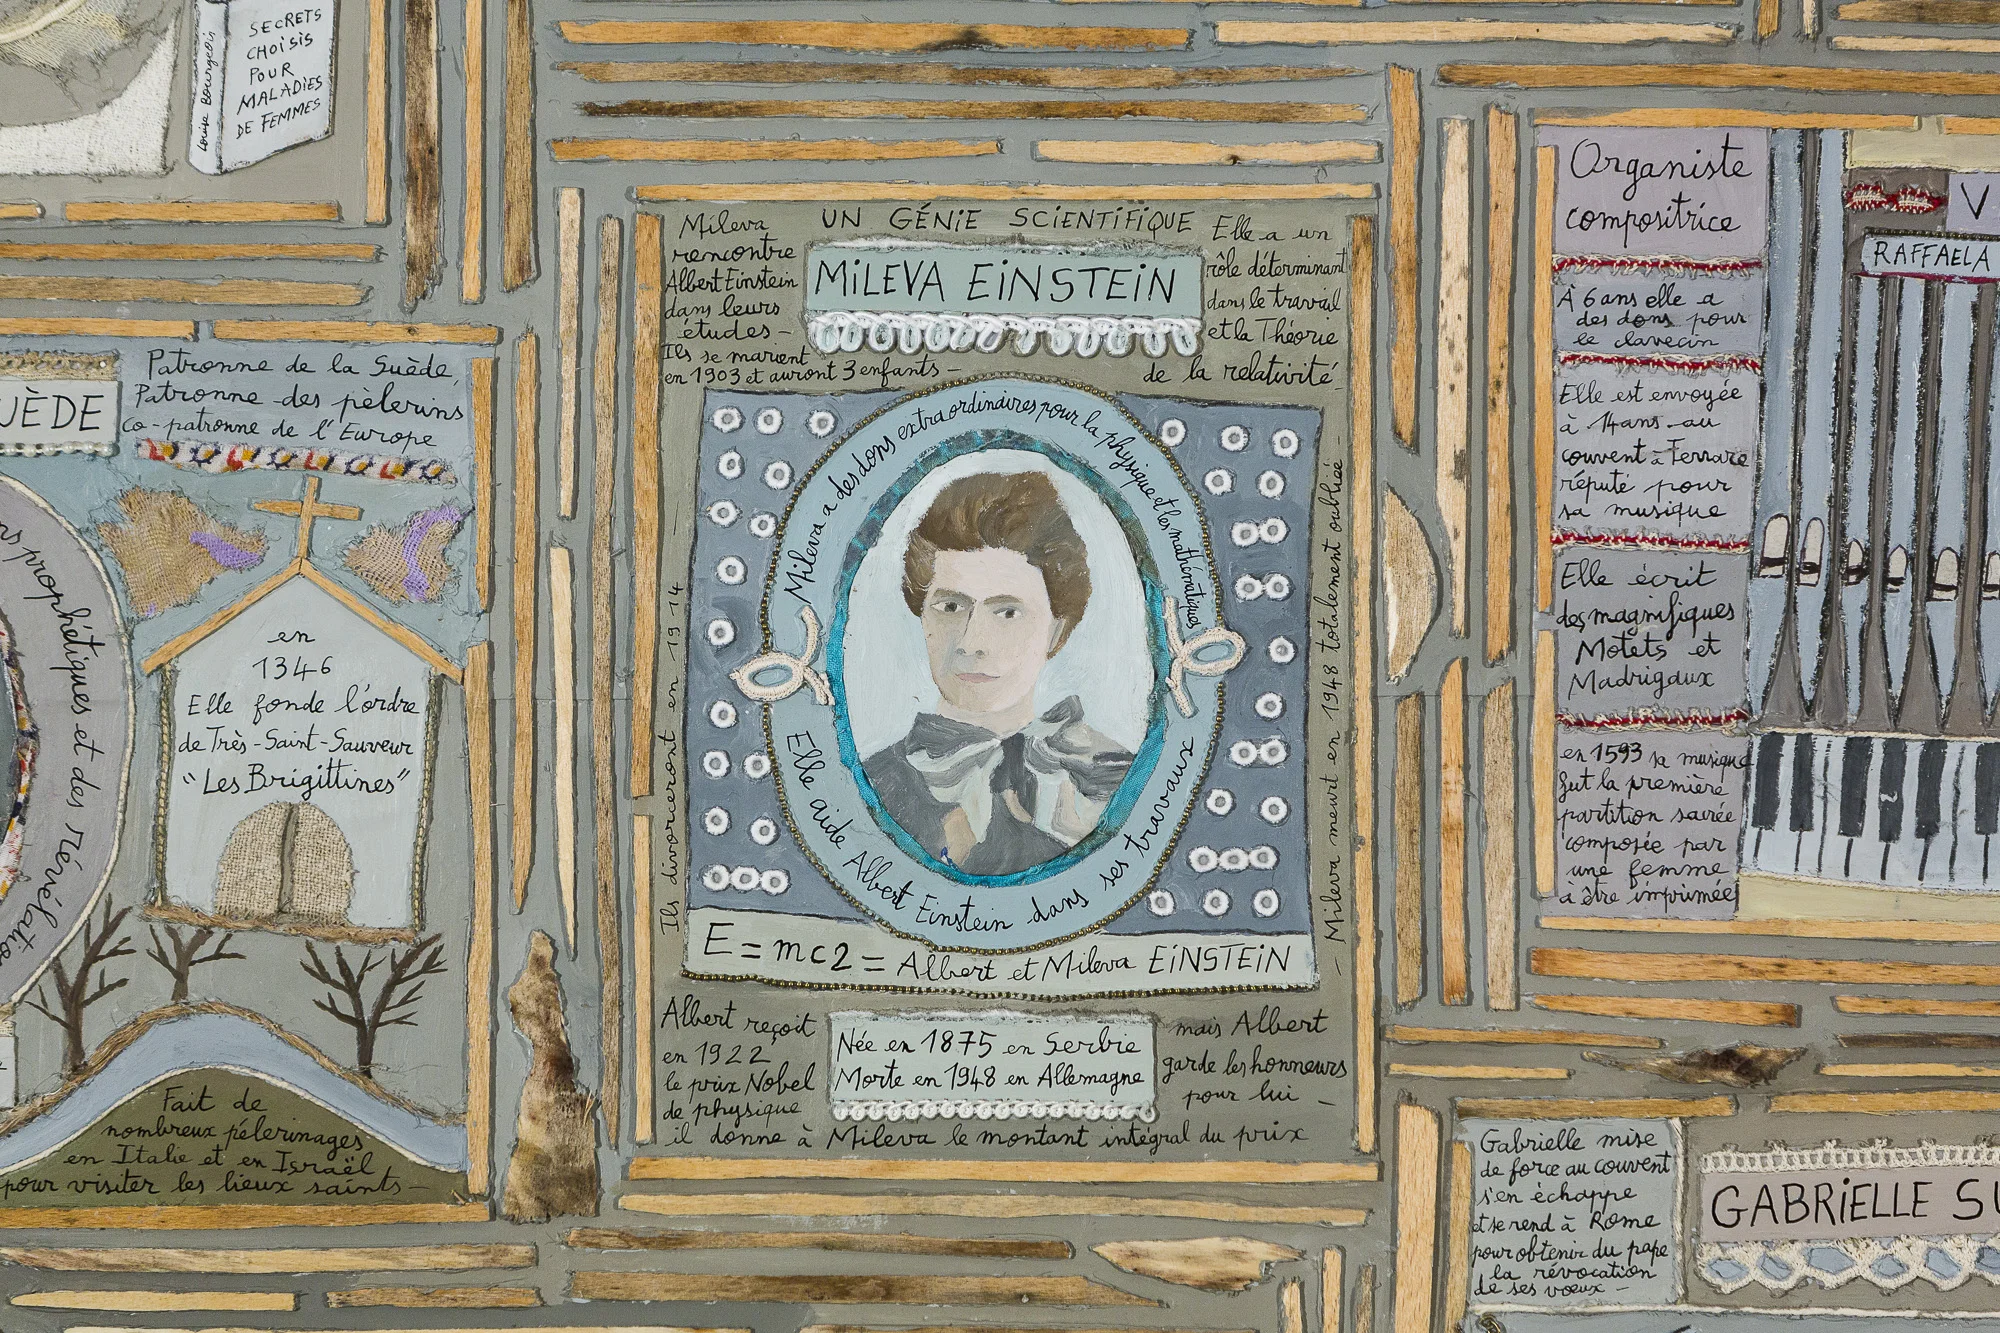 Louise Bourgeois
SECRETS
CHOISIS
POUR
MALADIES
DE FEMMES
UÈDE
Patronne de la Suède,
Patronne des pèlerins
co-patronne de l'Europe
prophétiques et des Révélations
en
1346
Elle fonde l'ordre
de Très-Saint-Sauveur
"Les Brigittines"
Fait de
nombreux pélerinages
en Italie et en Israël
pour visiter les lieux saints-
UN GÉNIE SCIENTIFIQUE
MILEVA EINSTEIN
Mileva
rencontre
Albert Einstein
dans leurs
études-
Ils se marient
en 1903 et auront 3 enfants-
Elle a un
rôle déterminant
dans le travail
et la Théorie
de la relativité-
Ils divorceront en 1914-
Mileva a des dons extraordinaires pour la physique et les mathématiques
Elle aide Albert Einstein dans ses travaux
-Mileva meurt en 1948 totalement oubliée-
E=mc2= Albert et Mileva EINSTEIN
Albert reçoit
en 1922
le prix Nobel
de physique
Née en 1875 en Serbie
Morte en 1948 en Allemagne
mais Albert
garde les honneurs
pour lui -
il donne à Mileva le montant intégral du prix
Organiste
compositrice
V
RAFFAELA
À 6 ans elle a
des dons pour
le clavecin
Elle est envoyée
à 14 ans au
couvent à Ferrare
réputé pour
sa musique
Elle écrit
des magnifiques
Motets et
Madrigaux
en 1593 sa musique
fut la première
partition sacrée
composée par
une femme
à être imprimée
Gabrielle mise
de force au couvent
s'en échappe
et se rend à Rome
pour obtenir du pape
la révocation
de ses voeux-
GABRIELLE SU